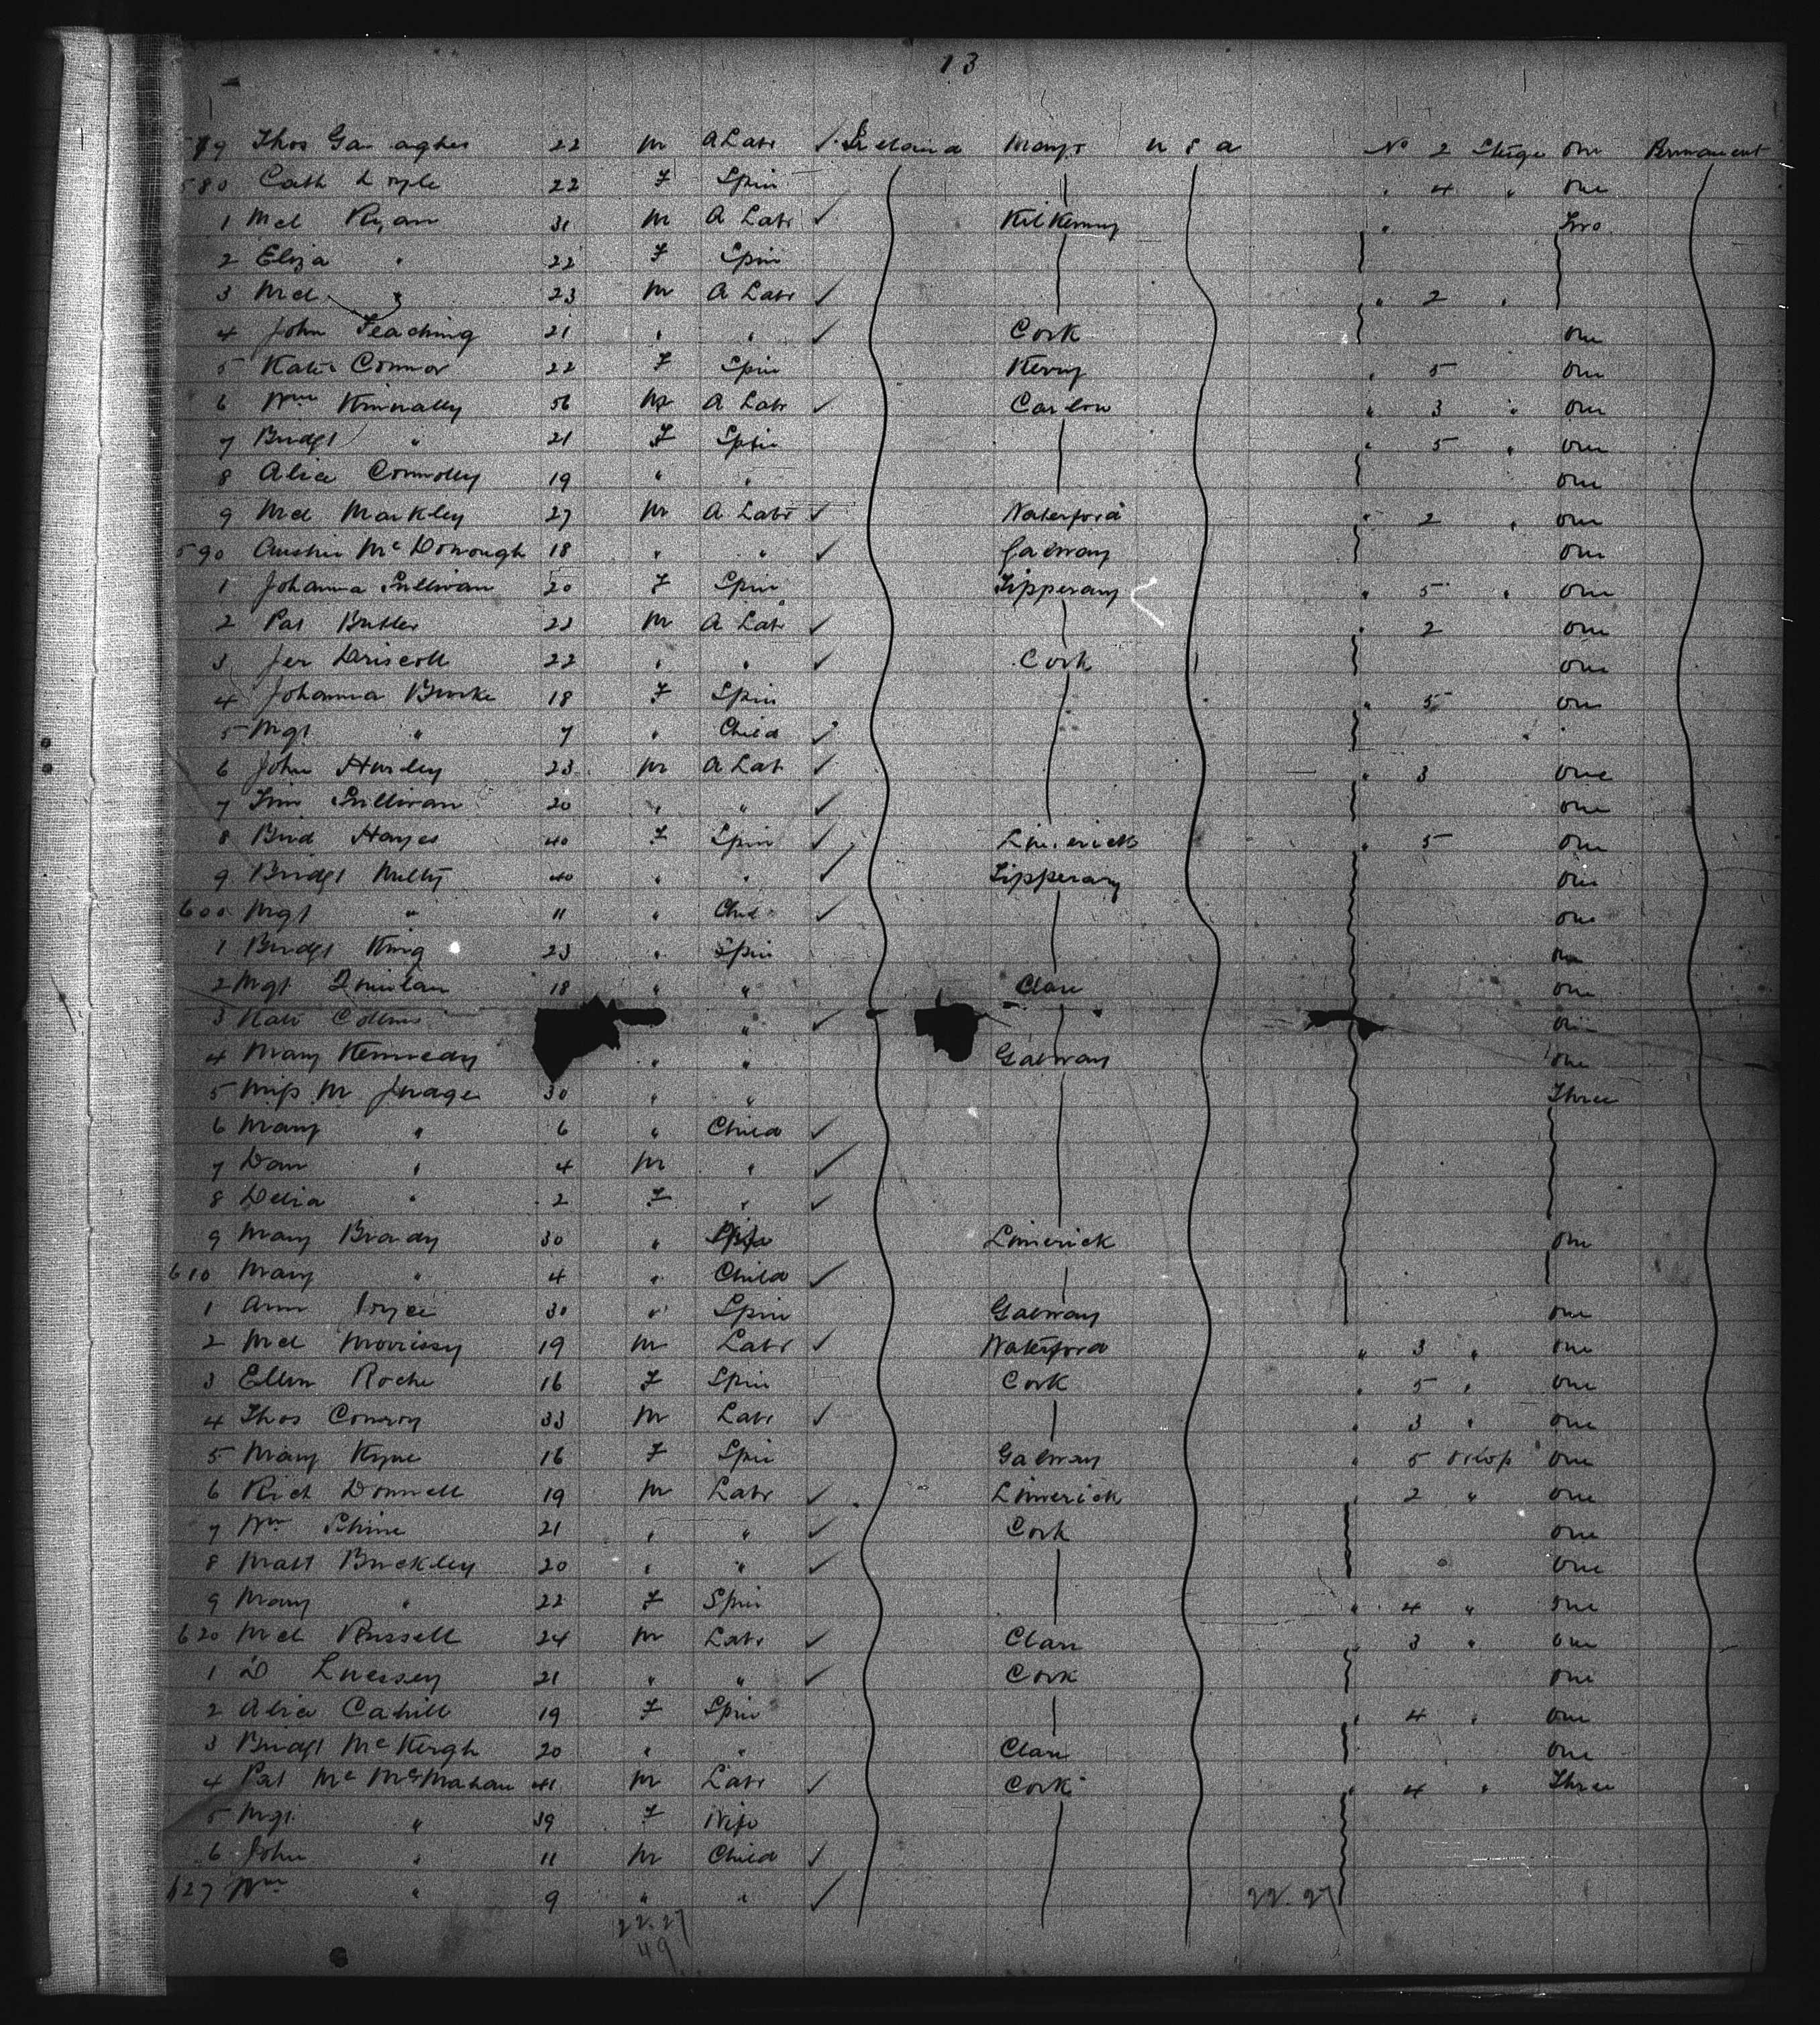 13
579 Thos Gallagher 22 M A Labr ✓ Ireland Mayo U S A No 2 Stege One Permanent
580 Cath Doyle 22 F Spin " 4 " One
1 Mcl Ryan 31 M A Labr ✓ Kilkenny " Two
2 Eliza " 22 F Spin
3 Mcl " 23 M A Labr ✓ " 2 "
4 John 21 " " ✓ Cork One
5 Kate Connor 22 F Spin Kerry " 5 One
6 Wm Kinnally 56 M A Labr ✓ Carlow " 3 " One
7 Bridgt " 21 F Spin " 5 " One
8 Alice Connolly 19 " " One
9 Mcl Markley 27 M A Labr ✓ Waterford " 2 " One
590 Austin McDonough 18 " " ✓ Galway One
1 Johanna Sullivan 20 F Spin Tipperary " 5 " One
2 Pat Butler 22 M A Labr ✓ " 2 One
3 Jer Driscoll 22 " " ✓ Cork One
4 Johanna Burke 18 F Spin " 5 One
5 Mgt " 7 " Child ✓
6 John Hurley 23 M A Lab ✓ " 3 One
7 Tim Sullivan 20 " " ✓ One
8 Brid Hayes 40 F Spin ✓ Limerick " 5 One
9 Bridgt 40 " " ✓ Tipperary One
600 Mgt " 11 " Child ✓ One
1 Bridgt King 23 " Spin One
2 Mgt Quinlan 18 " " Clare One
3 Kate Collins " ✓ One
4 Mary Kennedy " " Galway One
5 M Judge 30 " " Three
6 Mary " 6 " Child ✓
7 Dan " 4 M " ✓
8 Delia " 2 F " ✓
9 Mary Brandy 30 " Wife Limerick One
610 Mary " 4 " Child ✓
1 Ann Joyce 30 " Spin Galway One
2 Mcl Morrissy 19 M Labr ✓ Waterford " 3 " One
3 Ellen Roche 16 F Spin Cork " 5 " One
4 Thos Conroy 33 M Labr ✓ " 3 " One
5 Mary Kyne 16 F Spin Galway " 5 Orlop One
6 Rich Donnell 19 M Labr ✓ Limerick " 2 " One
7 Wm Shine 21 " " ✓ Cork One
8 Matt Buckley 20 " " ✓ One
9 Mary " 22 F Spin " 4 " One
620 Mcl Russell 24 M Labr ✓ Clare " 3 " One
1 D Lucssey 21 " " ✓ Cork One
2 Alice Cahill 19 F Spin " 4 " One
3 Bridgt McKergh 20 " " Clare One
4 Pat Mc McMahan 41 M Labr ✓ Cork " 4 " Three
5 Mgt " 39 F Wife
6 John " 11 M Child ✓
627 Wm " 9 " " ✓ 22.27
22.27
49